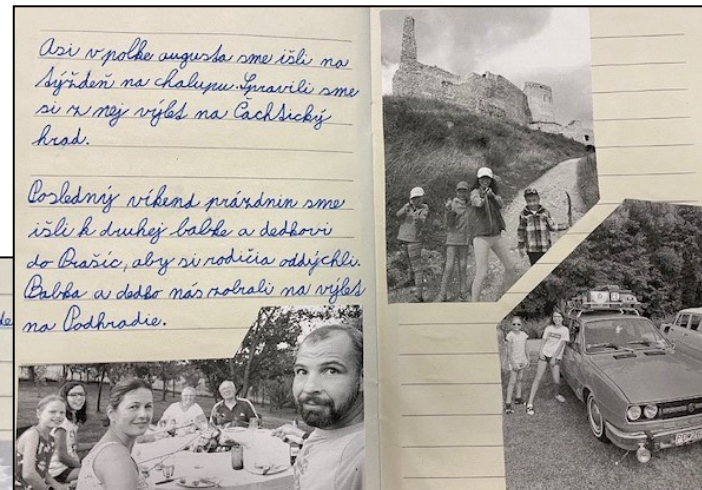 Asi v polke augusta sme išli na
týždeň na chalupu. Spravili sme
si z nej výlet na Čachtický
hrad.
Posledný víkend prázdnin sme
išli k druhej babke a dedkovi
do Prašíc, aby si rodičia oddýchli.
Babka a dedko nás zobrali na výlet
na Podhradie.